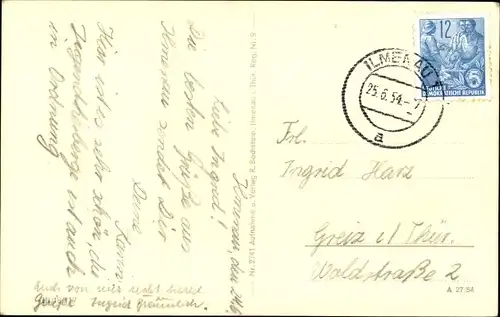 Ilmenau, den 24.6.
Liebe Ingrid!
Die besten Grüße aus
Ilmenau sendet Dir
Deine
Karin
Hier ist es sehr schön, die
Jugendherberge ist auch
in Ordnung
Auch von mir recht herzl.
Grüße Ingrid
Nr. 2/41 Aufnahme u. Verlag R. Bechstein, Ilmenau i. Thür. Reg. Nr. 9
ILMENAU
25.6.54.-7
a
12
5
DEUTSCHE
DEMOKRATISCHE REPUBLIK
Frl.
Ingrid Harz
Greiz i/ Thür.
Waldstraße 2
A 27/54